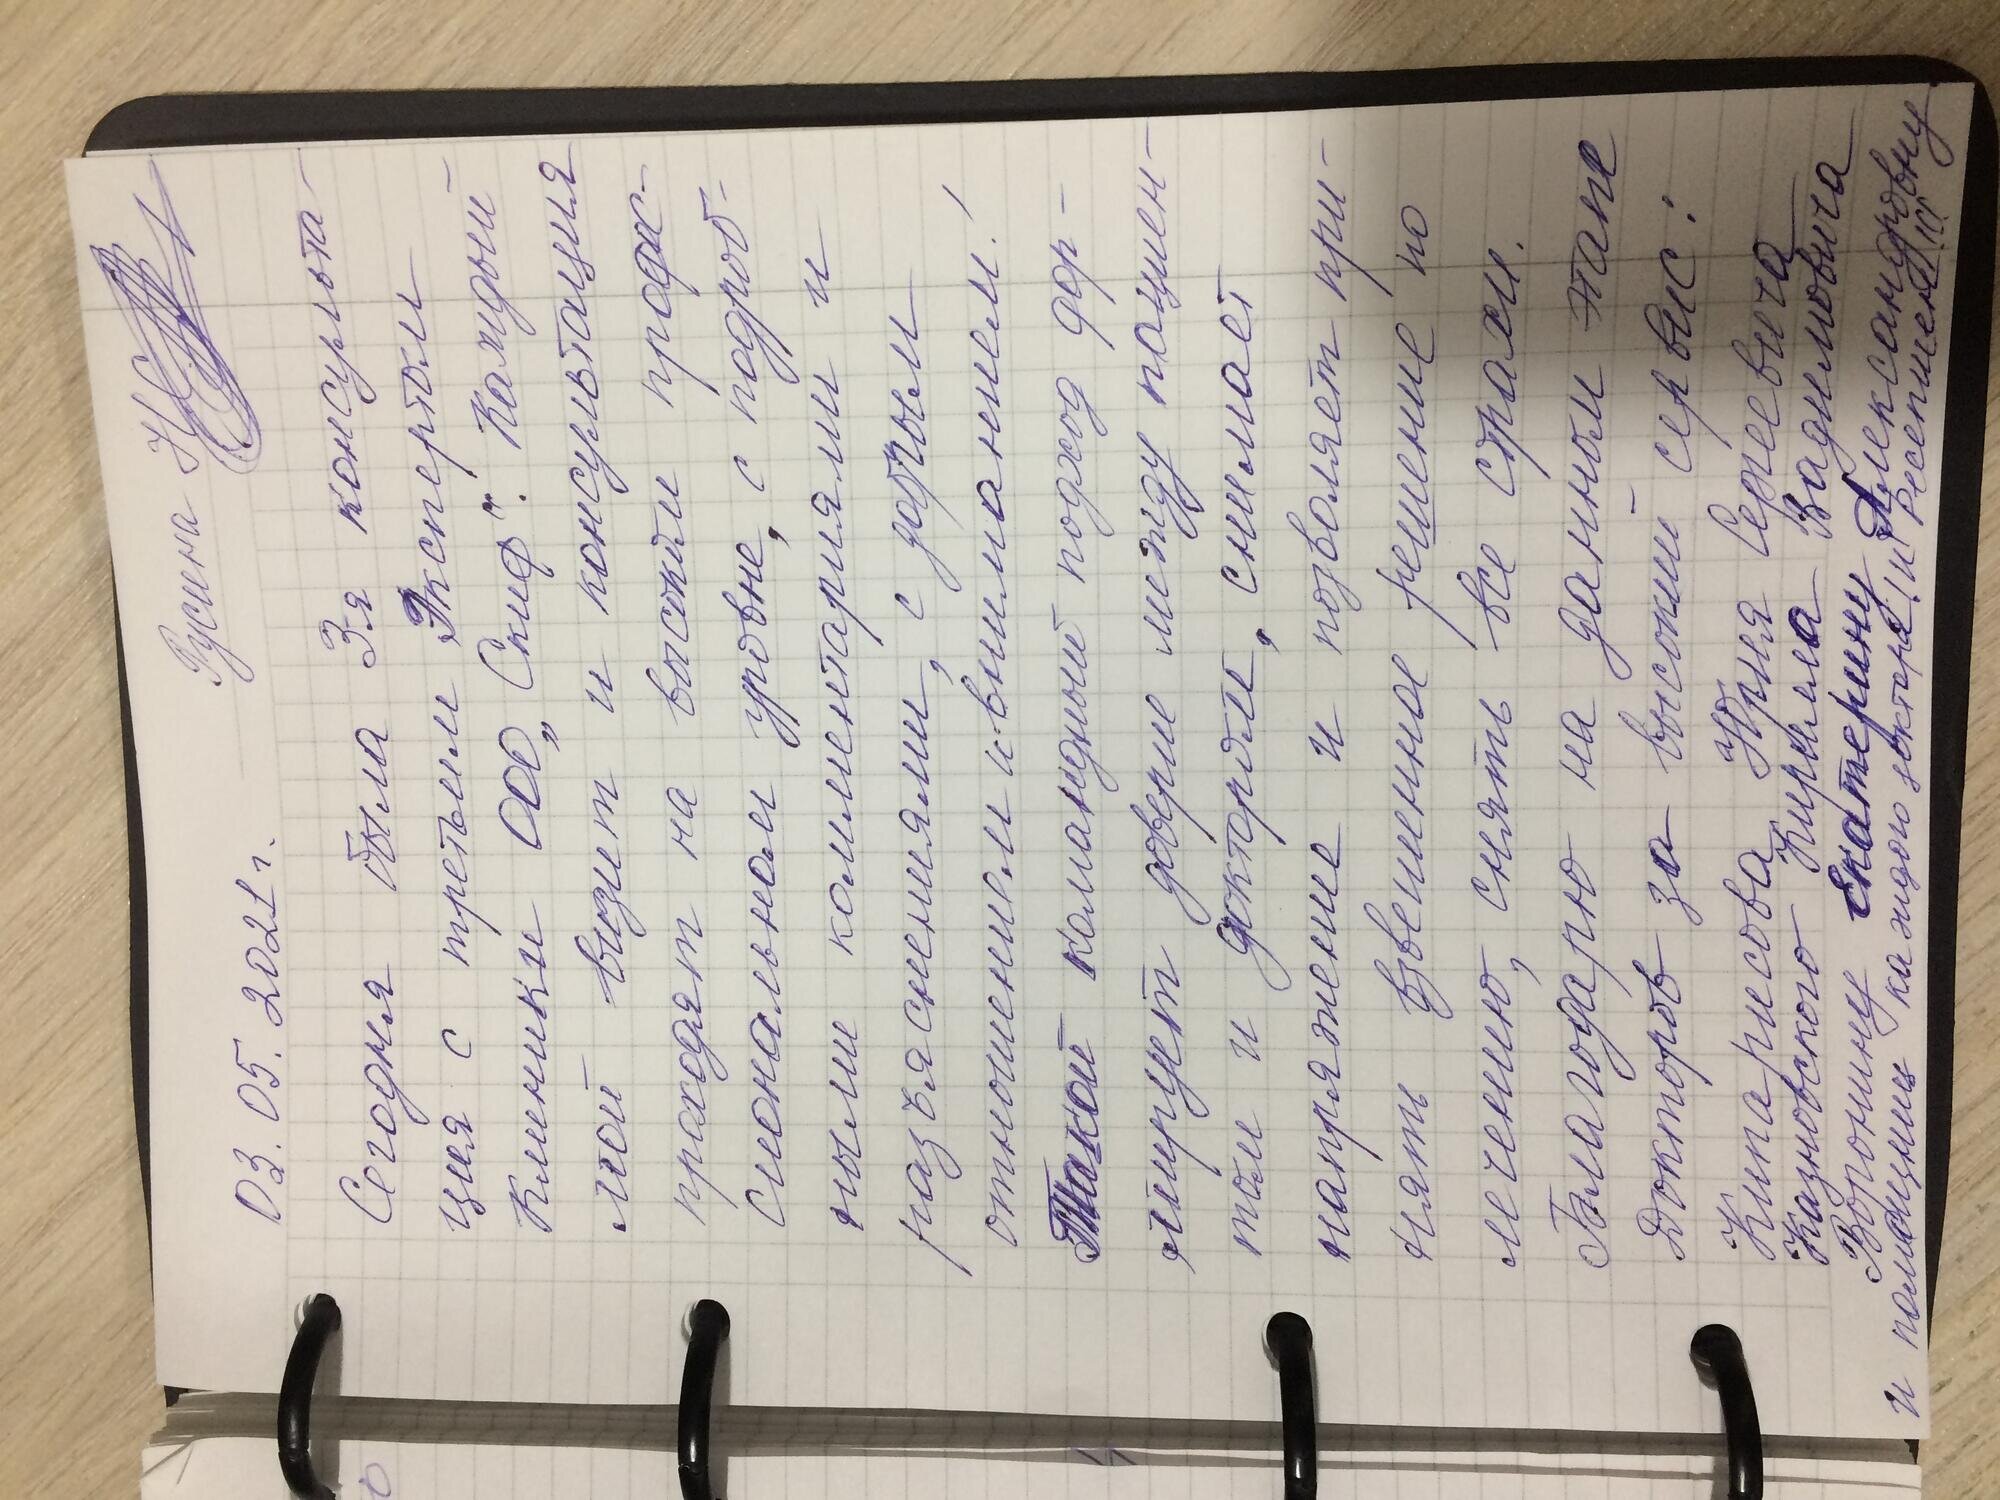 03.05.2021 г. Русина Н
Сегодня была 3-я консульта-
ция с третьим Экспертом
Клиники ООО „Скиф". Каждый
мой визит и консультация
проходят на высоком профес-
сиональном уровне, с подроб-
ными комментариями и
разъяснениями, с добрым
отношением и вниманием!
Такой командный подход фор-
мирует доверие между пациен-
том и доктором, снимает
напряжение и позволяет при-
нять взвешенное решение по
лечению, снять все страхи.
Благодарю на данном этапе
Докторов за высокий сервис:
Кипарисова Юрия Сергеевича
Казновского Кирилла Вадимовича
Воронину Екатерину Александровну
и помощниц каждого доктора! и Ресепшен!!!